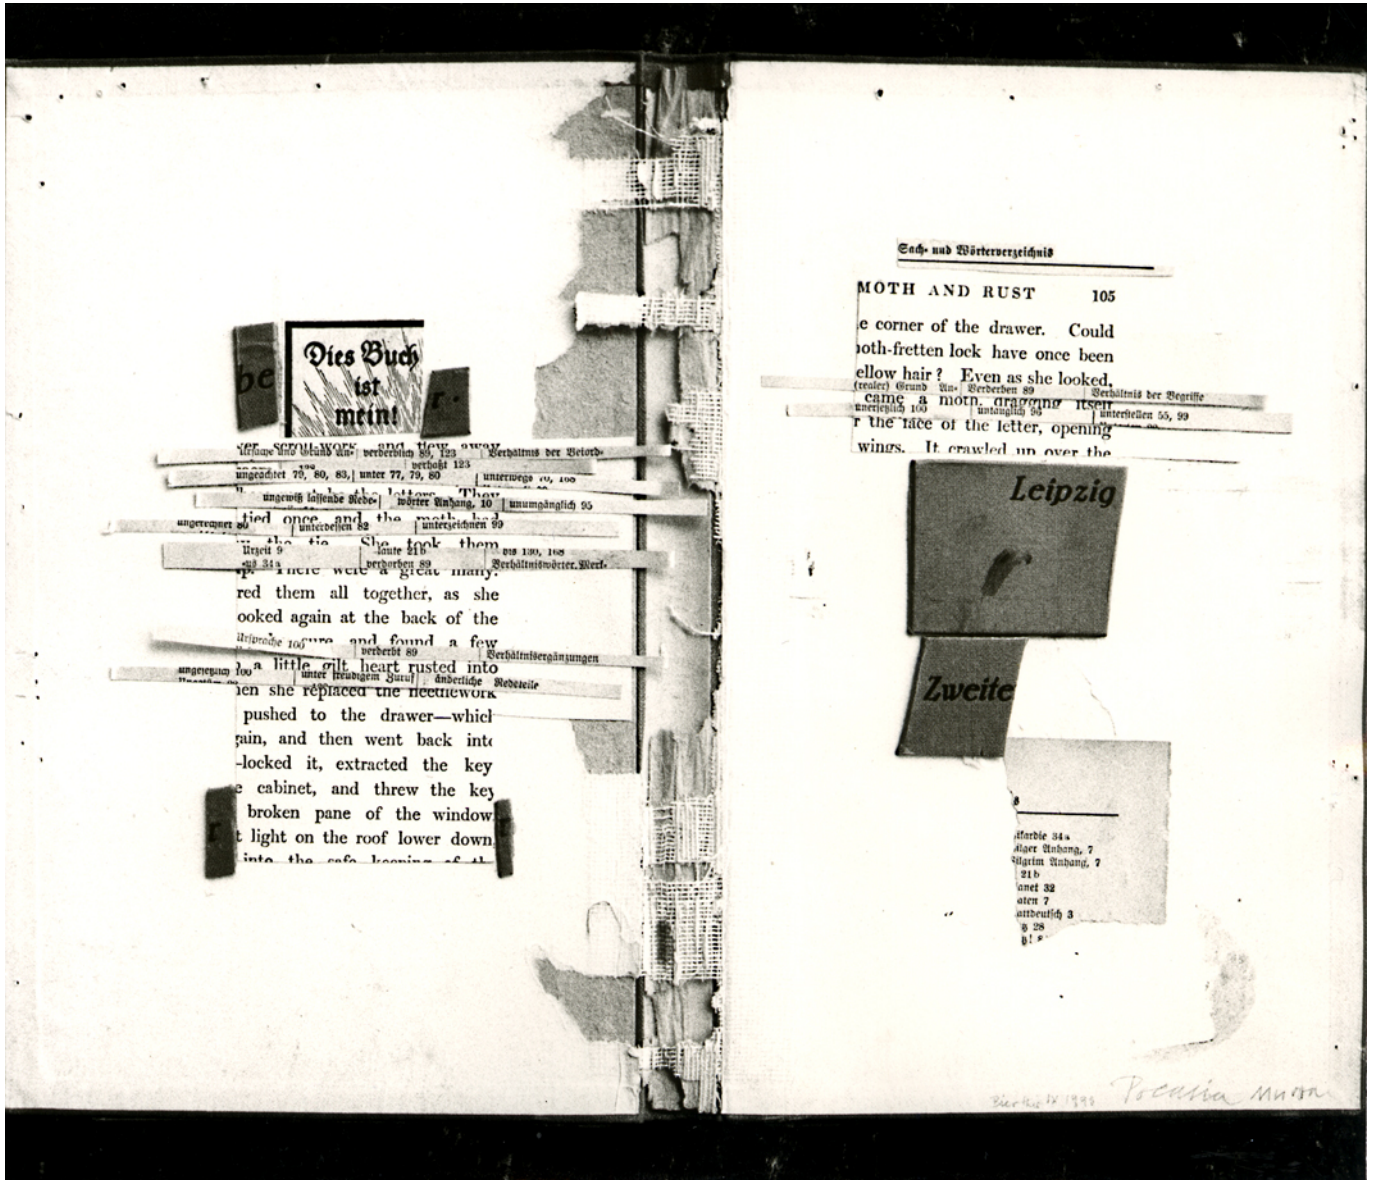 be
Dies Buch
ist
mein!
r.
ver scroll-work and flew away
Ursache und Grund An- verderblich 89, 123 Verhältnis der Beiord-
verhaßt 123
ungeachtet 79, 80, 83, unter 77, 79, 80 unterwegs
the letters. They
ungewiß lassende Rede- wörter Anhang, 10 unumgänglich 95
tied once, and the moth had
ungerechnet 80 unterdessen 82 unterzeichnen 99
the tie. She took them
Urzeit 9 laute 21b bis 130, 168
34a verdorben 89 Verhältniswörter. Merk-
There were a great many.
red them all together, as she
ooked again at the back of the
Ursprache 100 and found a few
verderbt 89 Verhältnisergänzungen
a little gilt heart rusted into
ungesetzlich 100 unter freudigem Zuruf änderliche Redeteile
en she replaced the needlework
pushed to the drawer—whicl
ain, and then went back int
-locked it, extracted the key
e cabinet, and threw the key
broken pane of the window
t light on the roof lower down,
into the safe keeping of th
r
Sach- und Wörterverzeichnis
MOTH AND RUST 105
e corner of the drawer. Could
oth-fretten lock have once been
ellow hair? Even as she looked,
(realer) Grund An- Verderben 89 Verhältnis der Begriffe
came a moth, dragging itself
unersetzlich 100 untauglich 96 unterstellen 55, 99
r the face of the letter, opening
wings. It crawled up over the
Leipzig
Zweite
s
lfarbie 34a
ilger Anhang, 7
Pilgrim Anhang, 7
21b
anet 32
aten 7
attdeutsch 3
tz 28